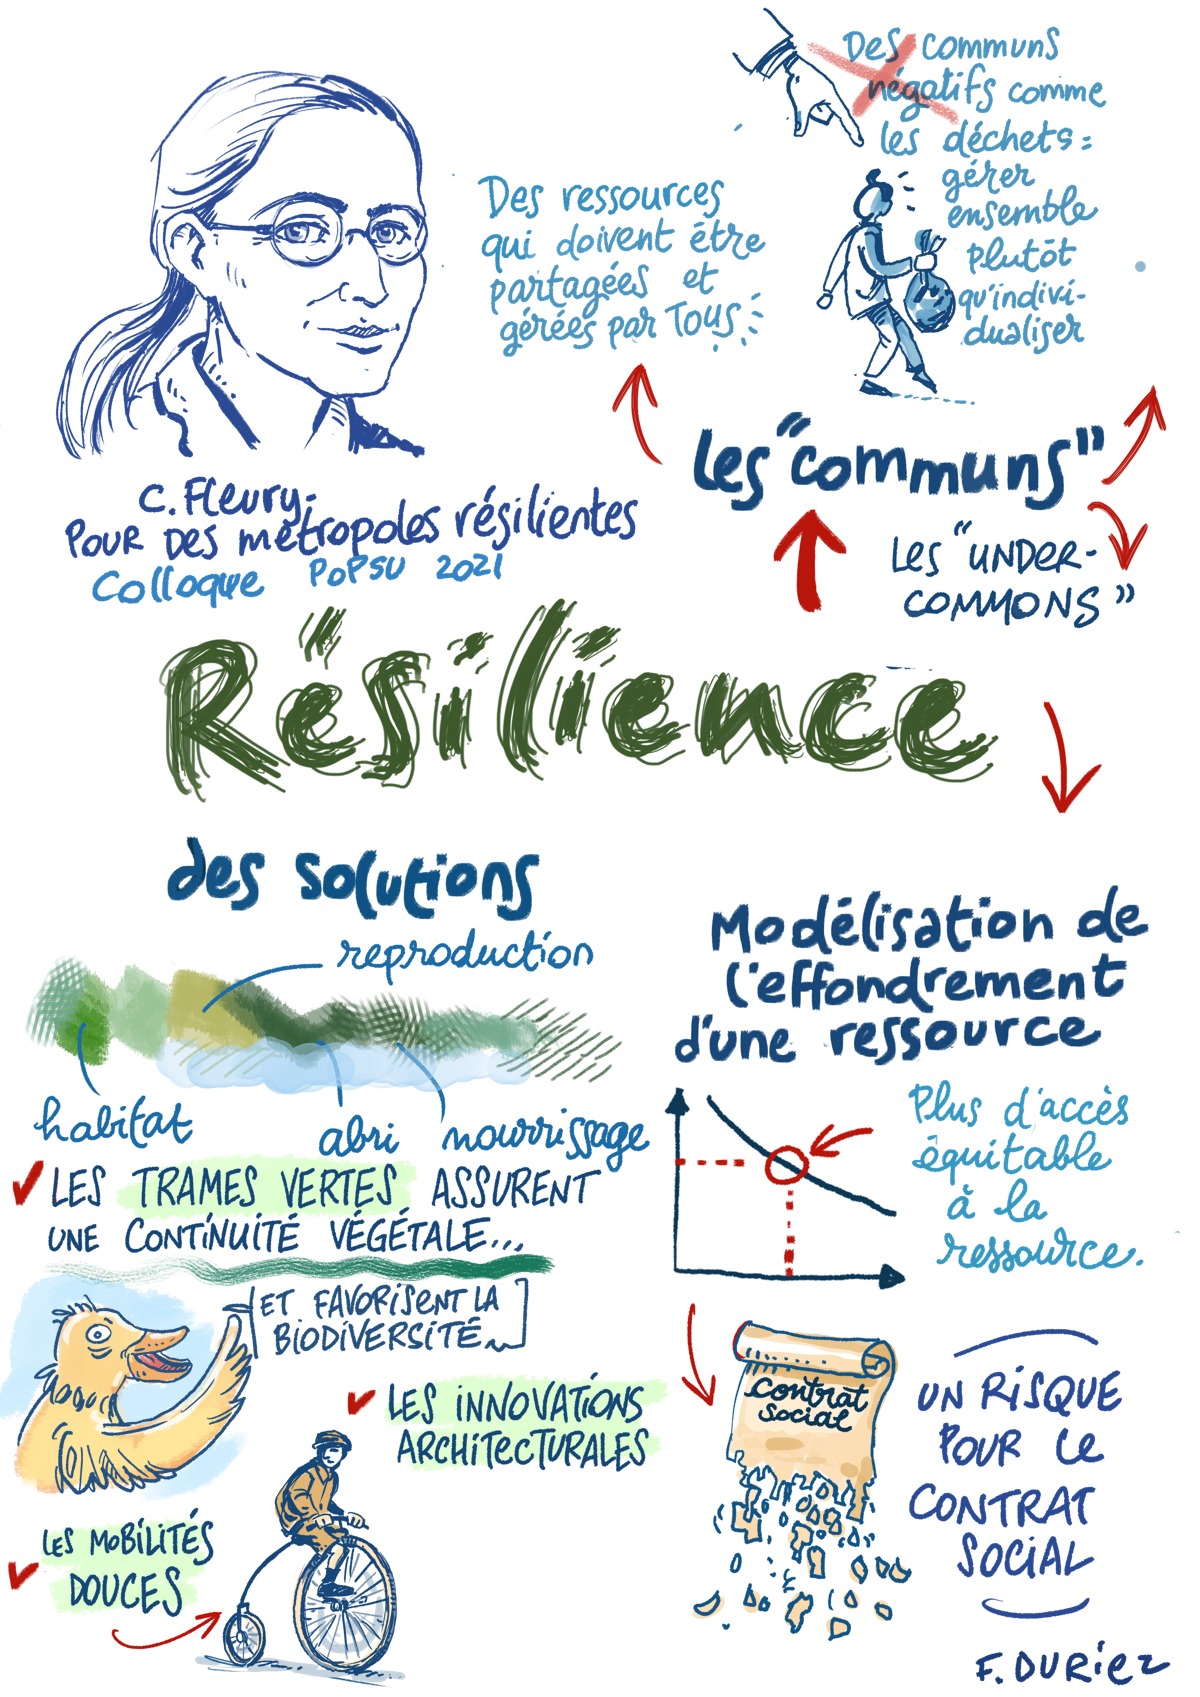 Des communs
négatifs comme
les déchets :
gérer
ensemble
plutôt
qu'indivi-
dualiser
Des ressources
qui doivent être
partagées et
gérées par TOUS
Les "communs"
Les "UNDER-
COMMONS"
C. Fleury.
POUR DES métropoles résilientes
Colloque POPSU 2021
Résilience
des solutions
reproduction
habitat
abri
nourrissage
LES TRAMES VERTES ASSURENT
UNE CONTINUITÉ VÉGÉTALE...
ET FAVORISENT LA
BIODIVERSITÉ
LES INNOVATIONS
ARCHITECTURALES
LES MOBILITÉS
DOUCES
Modélisation de
l'effondrement
d'une ressource
Plus d'accès
équitable
à la
ressource.
Contrat
social
UN RISQUE
POUR LE
CONTRAT
SOCIAL
F. DURIEZ